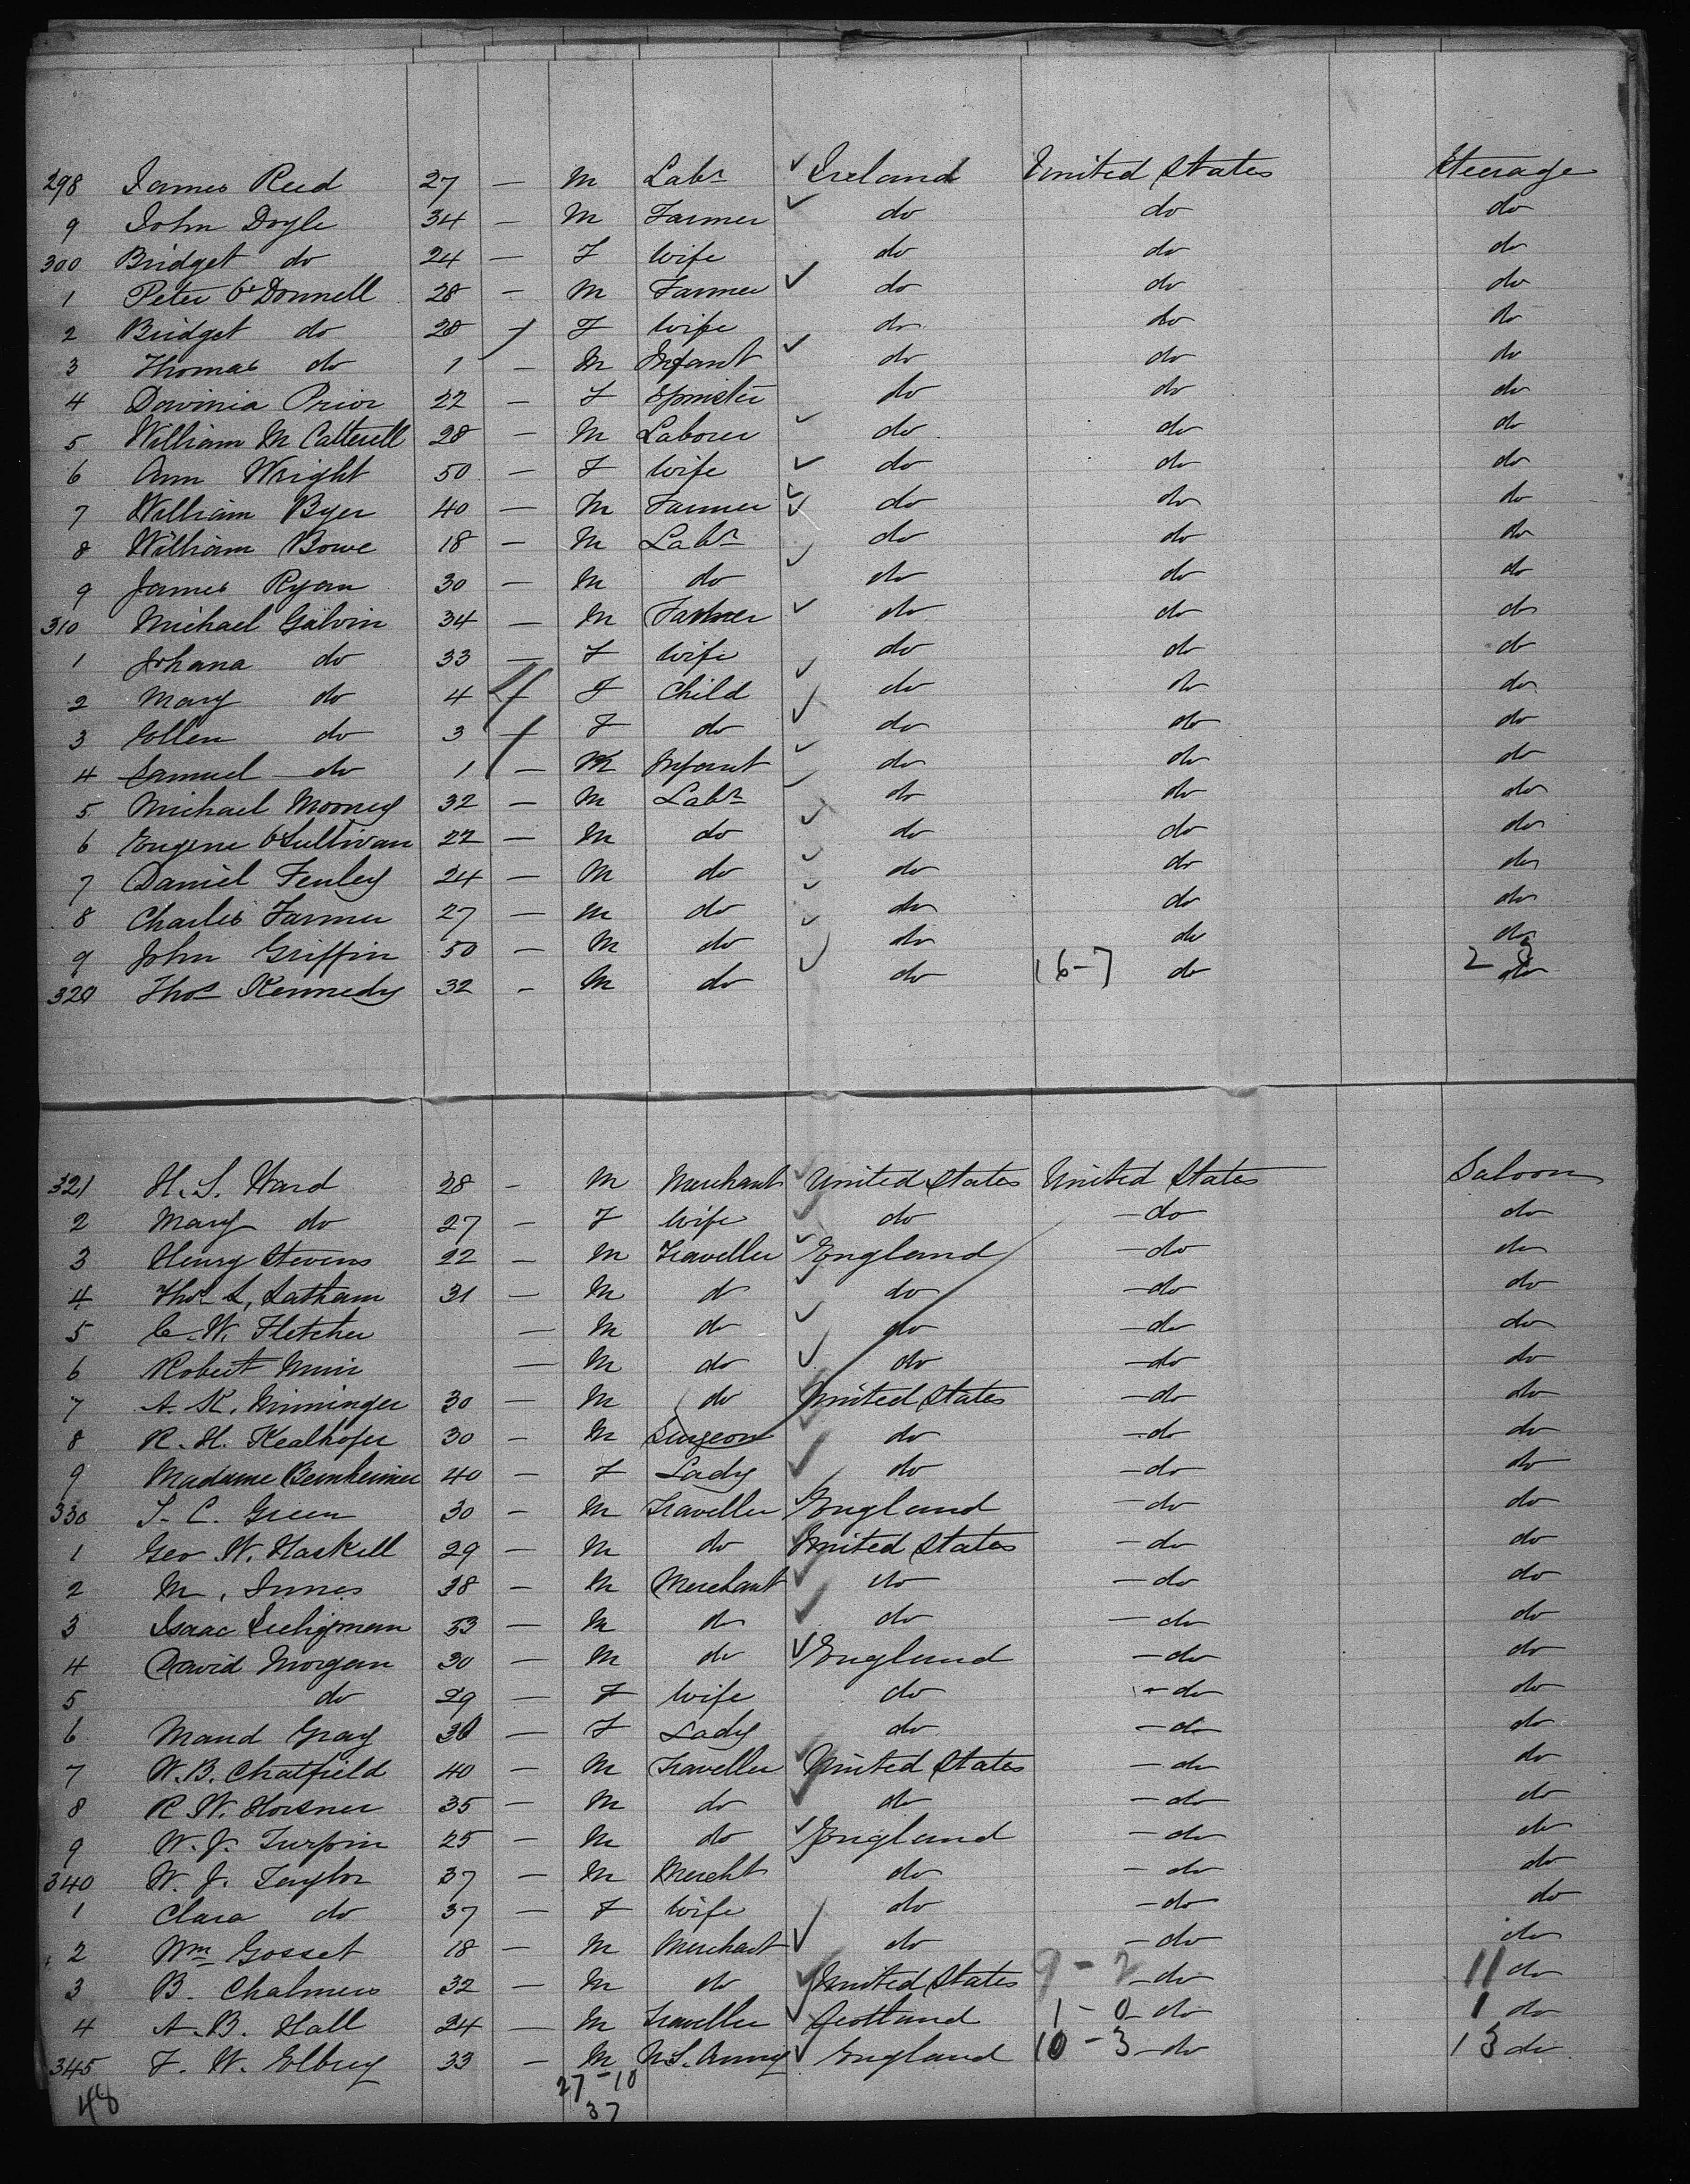 298 James Reed 27 — M Labr ✓ Ireland United States Steerage
9 John Doyle 34 — M Farmer ✓ do do do
300 Bridget do 24 — F Wife do do do
1 Peter O'Donnell 28 — M Farmer ✓ do do do
2 Bridget do 28 — F Wife do do do
3 Thomas do 1 — M Infant ✓ do do do
4 Davinia Prior 22 — F Spinster do do do
5 William Mc Catterell 28 — M Laborer ✓ do do do
6 Ann Wright 50 — F Wife ✓ do do do
7 William Byer 40 — M Farmer ✓ do do do
8 William Bowe 18 — M Labr do do do
9 James Ryan 30 — M do ✓ do do do
310 Michael Galvin 34 — M Farmer ✓ do do do
1 Johana do 33 — F Wife do do do
2 Mary do 4 — F Child ✓ do do do
3 Ellen do 3 — F do ✓ do do do
4 Samuel do 1 — M Infant ✓ do do do
5 Michael Mooney 32 — M Labr ✓ do do do
6 Eugene O'Sullivan 22 — M do ✓ do do do
7 Daniel Fenley 24 — M do ✓ do do do
8 Charles Farmer 27 — M do ✓ do do do
9 John Griffin 50 — M do ✓ do do do
320 Thos Kennedy 32 - M do ✓ do 16-7 do 23 do
321 H. S. Ward 28 - M Merchant ✓ United States United States Saloon
2 Mary do 27 — F Wife ✓ do — do do
3 Henry Stevens 22 — M Traveller ✓ England — do do
4 Thos S. Latham 31 — M do ✓ do — do do
5 C. W. Fletcher — M do ✓ do — do do
6 Robert Muir — M do ✓ do — do do
7 A. K. Minninger 30 — M do ✓ United States — do do
8 R. H. Kealhofer 30 — M Surgeon ✓ do — do do
9 Madame Bernheimer 40 — F Lady ✓ do — do do
330 S. C. Green 30 — M Traveller ✓ England — do do
1 Geo W. Haskell 29 — M do ✓ United States — do do
2 M. Innes 38 — M Merchant ✓ do — do do
3 Isaac Seeligman 53 — M do ✓ do — do do
4 David Morgan 30 — M do ✓ England — do do
5 do 29 — F Wife do — do do
6 Maud Gray 30 — F Lady do — do do
7 W. B. Chatfield 40 — M Traveller ✓ United States — do do
8 R. W. Horsner 35 — M do ✓ do — do do
9 W. J. Turpin 25 — M do ✓ England — do do
340 W. J. Taylor 37 — M Mercht ✓ do — do do
1 Clara do 37 — F Wife do — do do
2 Wm Gosset 18 — M Merchant ✓ do — do do
3 B. Chalmers 32 — M do ✓ United States 9-2 — do 11 do
4 A. B. Hall 24 — M Traveller ✓ Scotland 1-0 — do 1 do
345 F. W. 33 — M U.S. Army ✓ England 10-3 — do 13 do
27-10
48 37